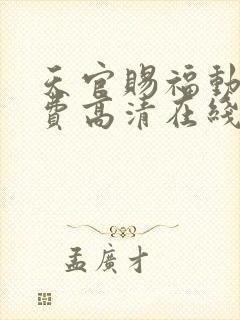 天官賜福動
費高清在綫
孟廣才